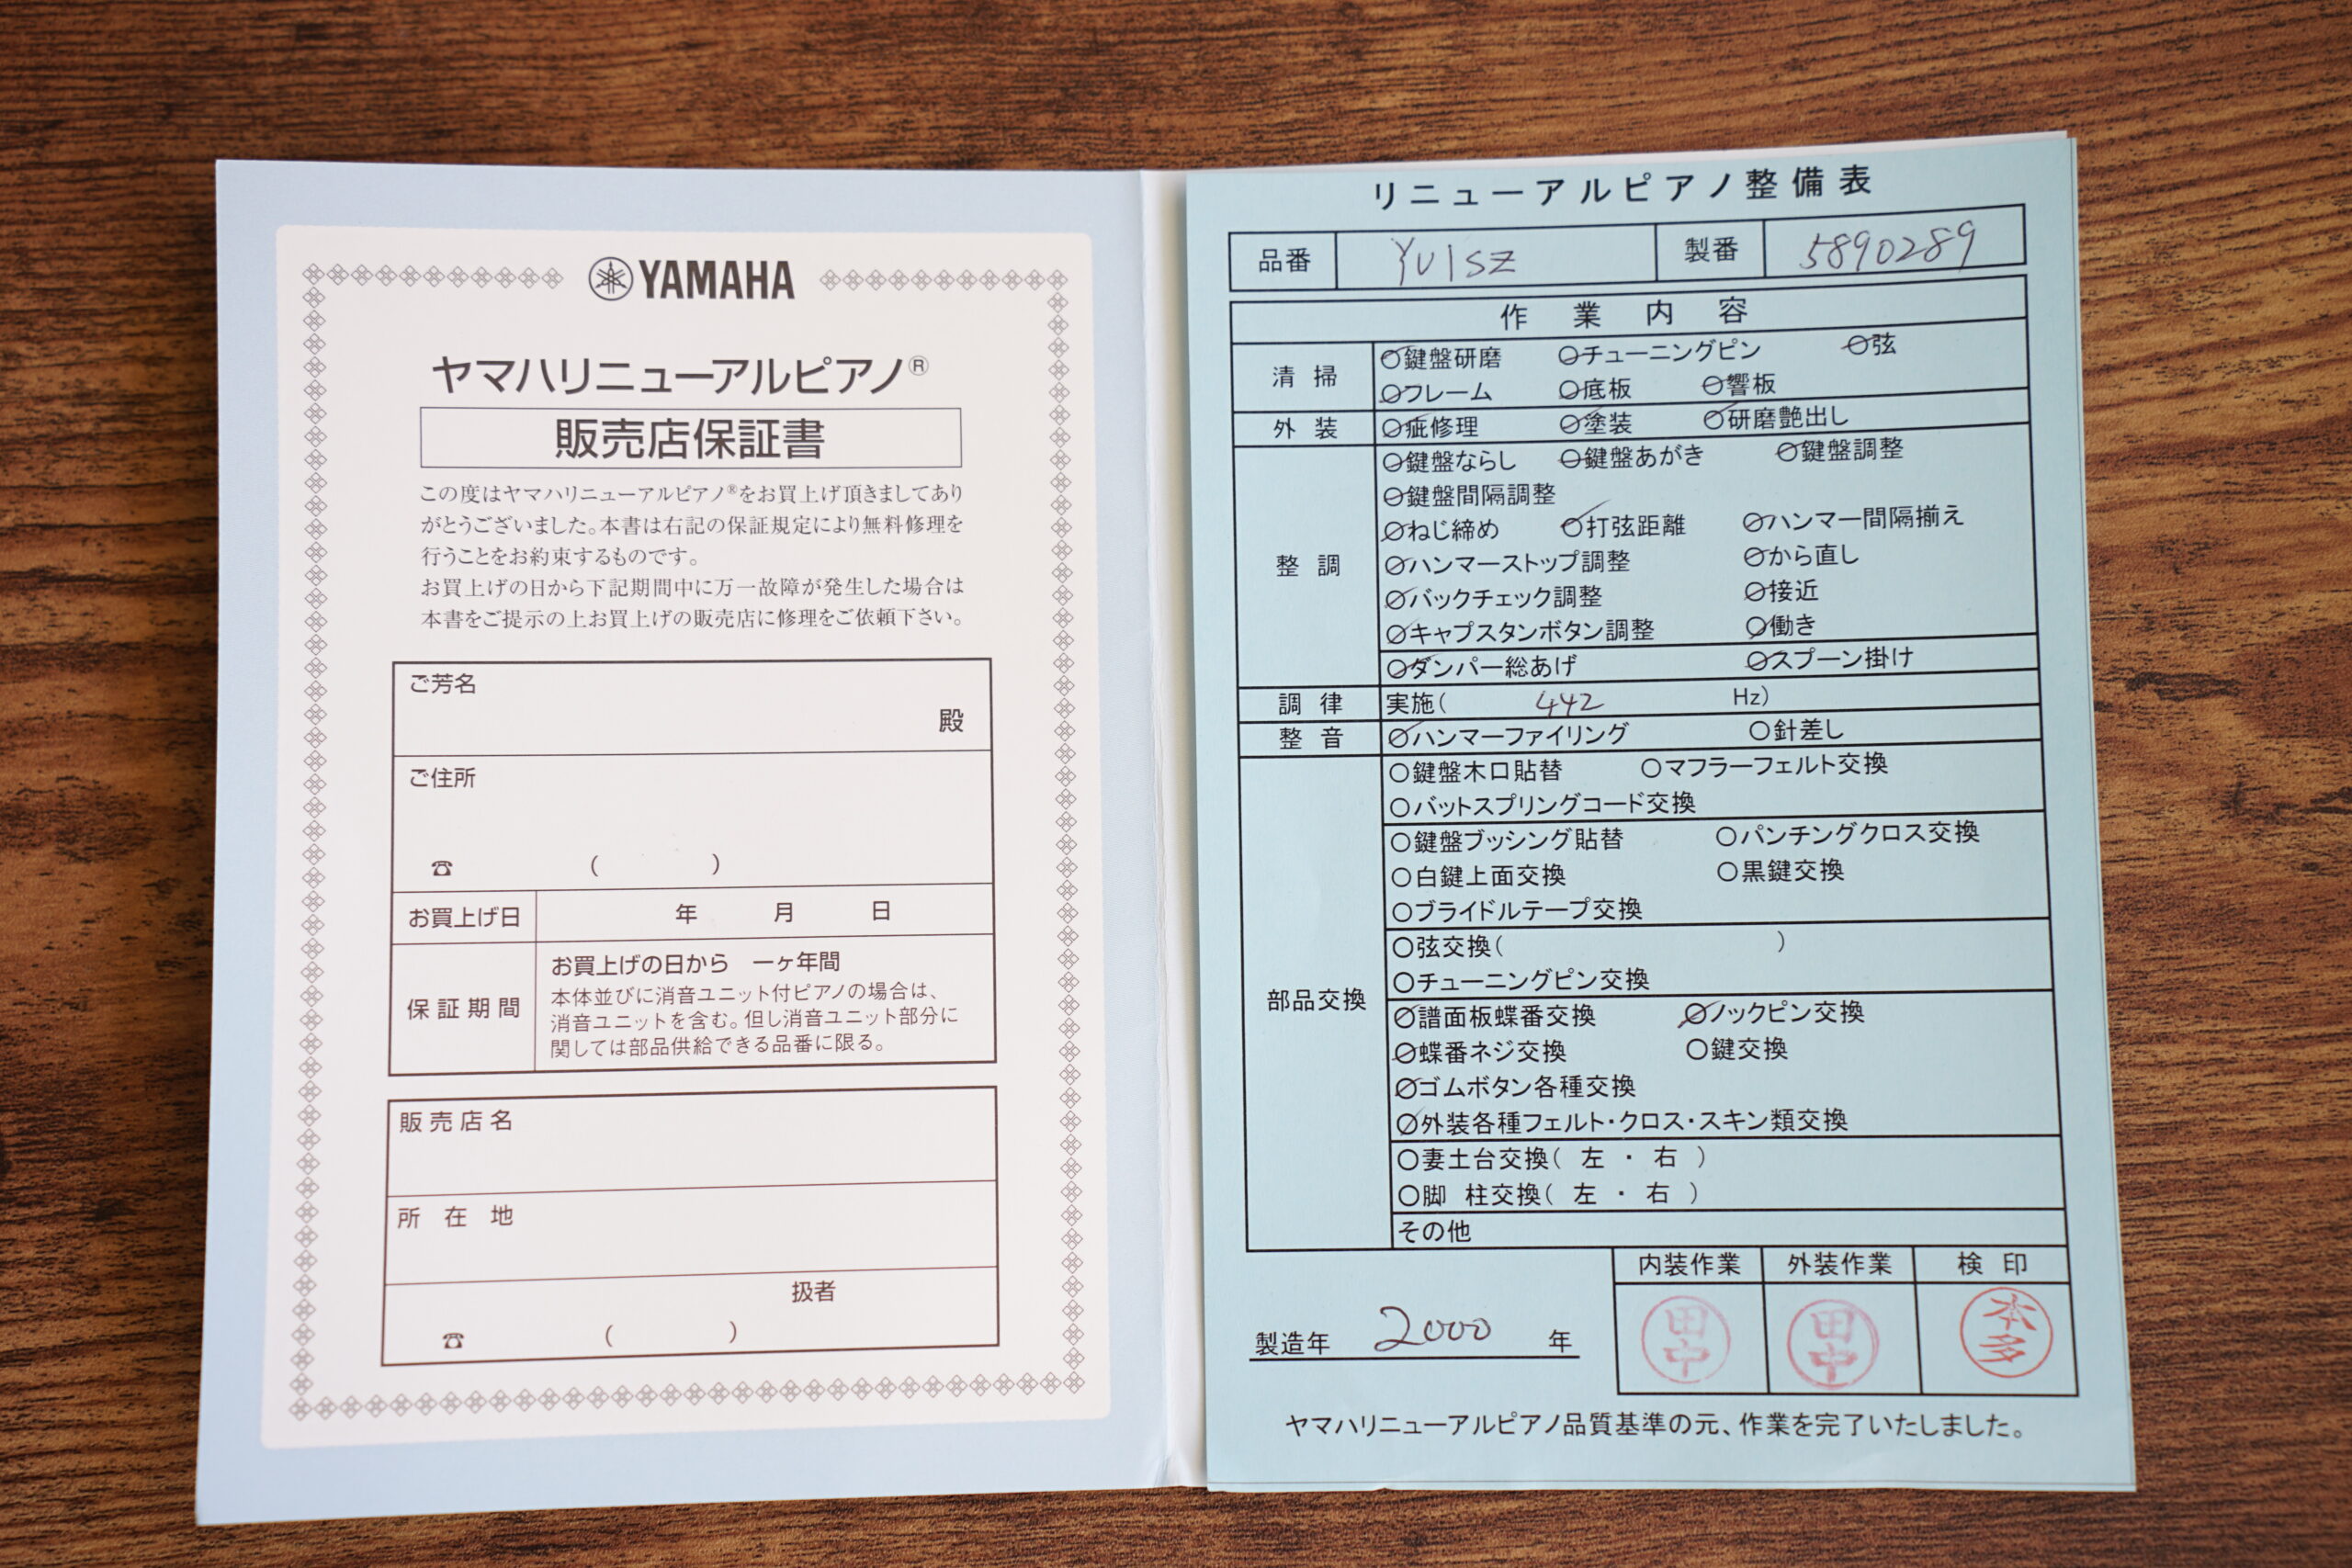 YAMAHA
ヤマハリニューアルピアノ®
販売店保証書
この度はヤマハリニューアルピアノ®をお買上げ頂きましてあり
がとうございました。本書は右記の保証規定により無料修理を
行うことをお約束するものです。
お買上げの日から下記期間中に万一故障が発生した場合は
本書をご提示の上お買上げの販売店に修理をご依頼下さい。
ご芳名
殿
ご住所
☎ ( )
お買上げ日 年 月 日
保証期間
お買上げの日から 一ヶ年間
本体並びに消音ユニット付ピアノの場合は、
消音ユニットを含む。但し消音ユニット部分に
関しては部品供給できる品番に限る。
販売店名
所在地
扱者
☎ ( )
リニューアルピアノ整備表
品番 YU1SZ 製番 5890289
作業内容
清掃
○鍵盤研磨 ○チューニングピン ○弦
○フレーム ○底板 ○響板
外装 ○疵修理 ○塗装 ○研磨艶出し
整調
○鍵盤ならし ○鍵盤あがき ○鍵盤調整
○鍵盤間隔調整
○ねじ締め ○打弦距離 ○ハンマー間隔揃え
○ハンマーストップ調整 ○から直し
○バックチェック調整 ○接近
○キャプスタンボタン調整 ○働き
○ダンパー総あげ ○スプーン掛け
調律 実施( 442 Hz)
整音 ○ハンマーファイリング ○針差し
部品交換
○鍵盤木口貼替 ○マフラーフェルト交換
○バットスプリングコード交換
○鍵盤ブッシング貼替 ○パンチングクロス交換
○白鍵上面交換 ○黒鍵交換
○ブライドルテープ交換
○弦交換( )
○チューニングピン交換
○譜面板蝶番交換 ○ノックピン交換
○蝶番ネジ交換 ○鍵交換
○ゴムボタン各種交換
○外装各種フェルト・クロス・スキン類交換
○妻土台交換( 左 ・ 右 )
○脚 柱交換( 左 ・ 右 )
その他
内装作業 外装作業 検印
田中 田中 本多
製造年 2000 年
ヤマハリニューアルピアノ品質基準の元、作業を完了いたしました。